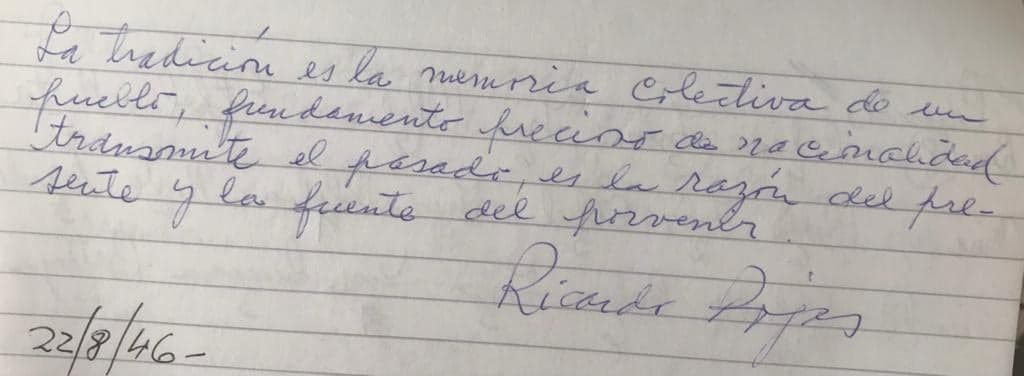 La tradición es la memoria colectiva de un
pueblo, fundamento preciso de nacionalidad
transmite el pasado, es la razón del pre-
sente y la fuente del porvenir.
Ricardo Rojas
22/8/46-